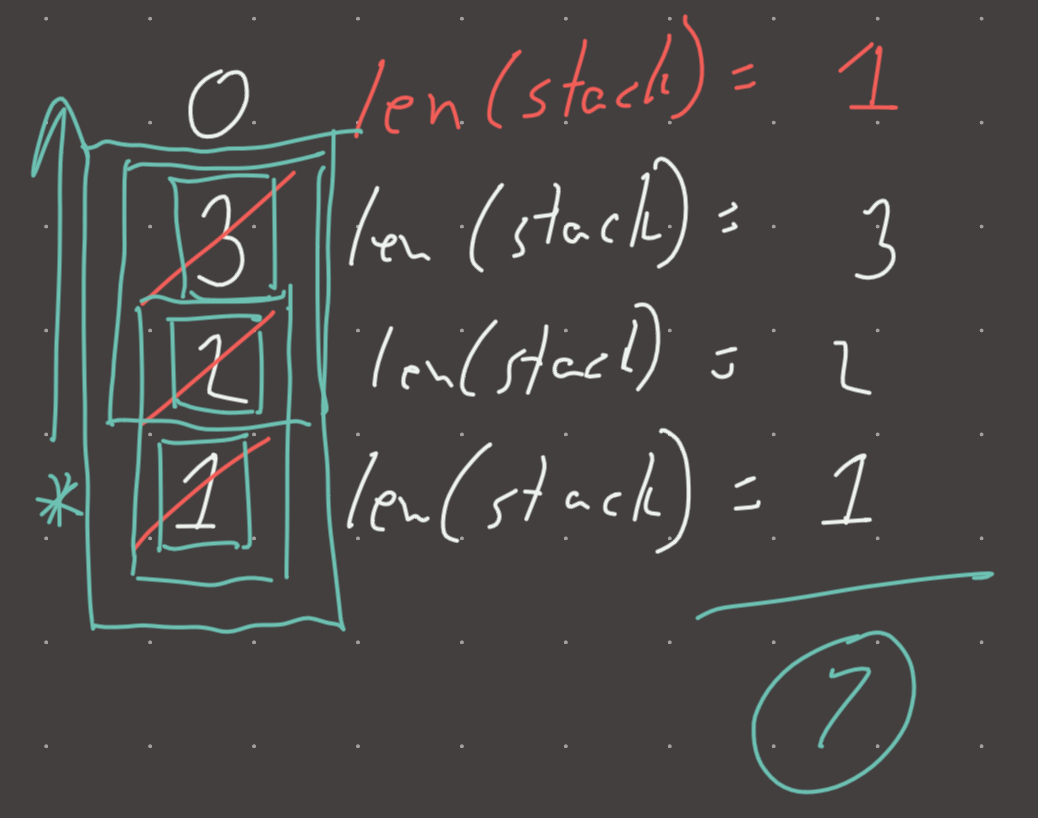 0 len(stack) = 1
3 len(stack) = 3
2 len(stack) = 2
* 1 len(stack) = 1
7